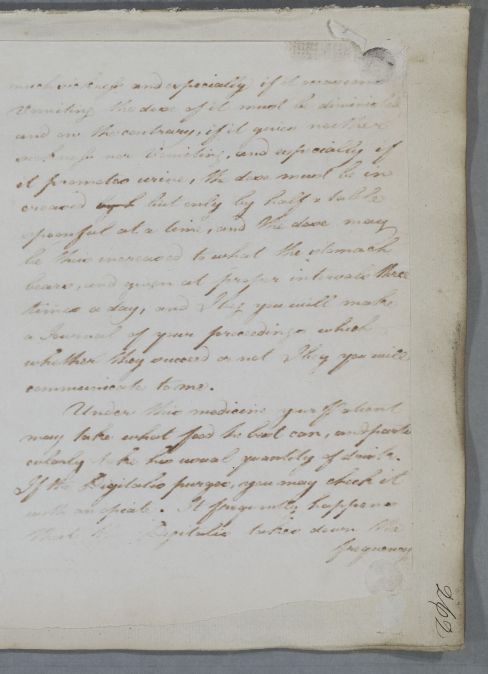 much sickness and especially if it occasions
Vomiting the dose of it must be diminished
and on the contrary, if it gives neither
sickness nor Vomiting, and especially if
it promotes urine, the dose must be in
creased but only by half a table
spoonful at a time, and the dose may
be thus increased to what the stomach
bears, and given at proper intervals three
times a day, and I beg you will make
a Journal of your proceedings which
whether they succeed or not I beg you will
communicate to me.
Under this medicine your Patient
may take what food he best can, and parti
cularly his usual quantity of Drink.
If the Digitalis purges, you may check it
with an opiate. It frequently happens
that the Digitalis takes down the
frequency
262